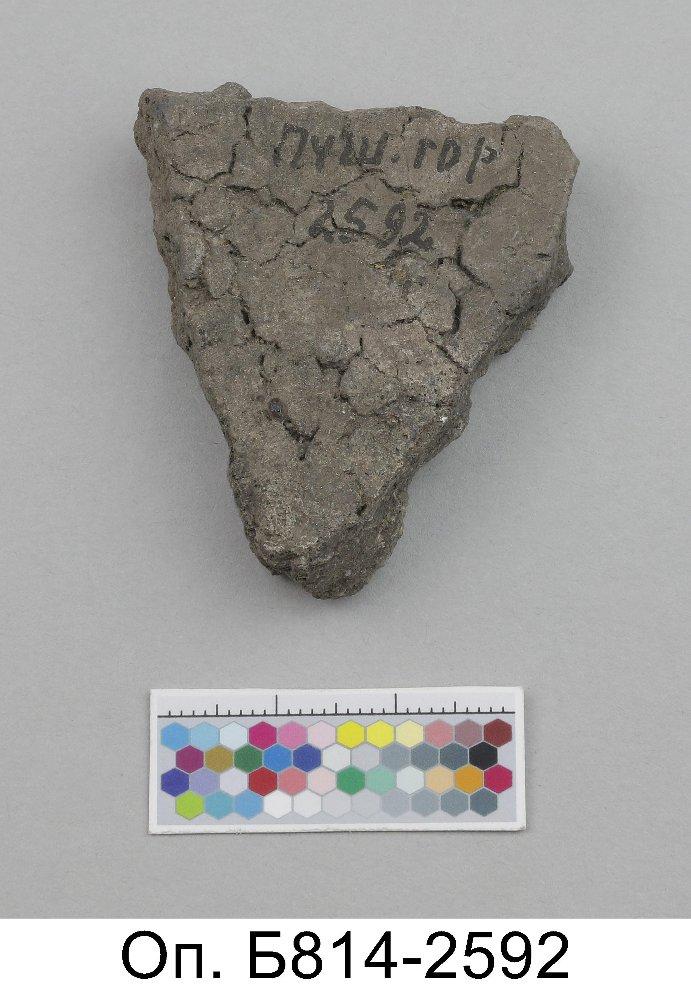 Пучи. гор
2592
Оп. Б814-2592